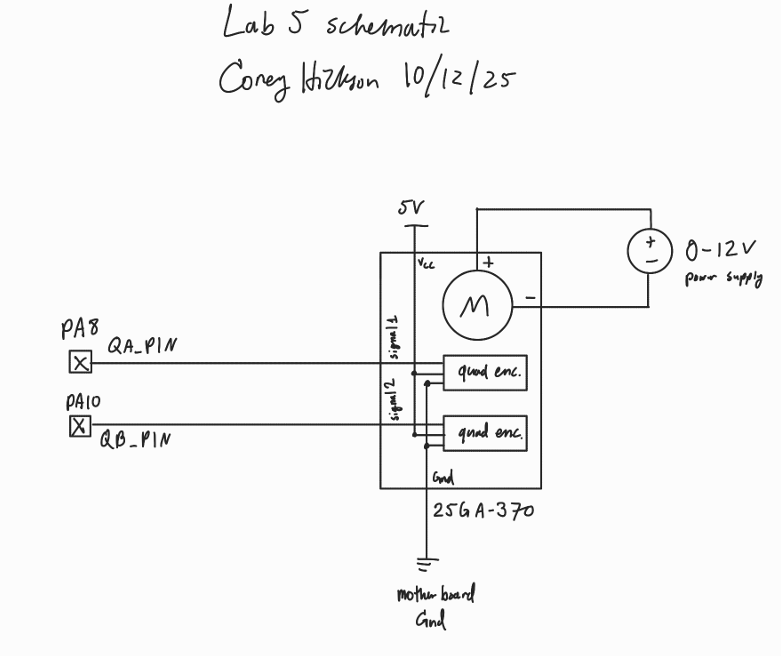 Lab 5 schematic
Corey Hickson 10/12/25
5V
Vcc
+
-
M
+
-
0-12V
power supply
PA8
QA_PIN
signal 1
quad enc.
PA10
QB_PIN
signal 2
quad enc.
Gnd
25GA-370
mother board
Gnd